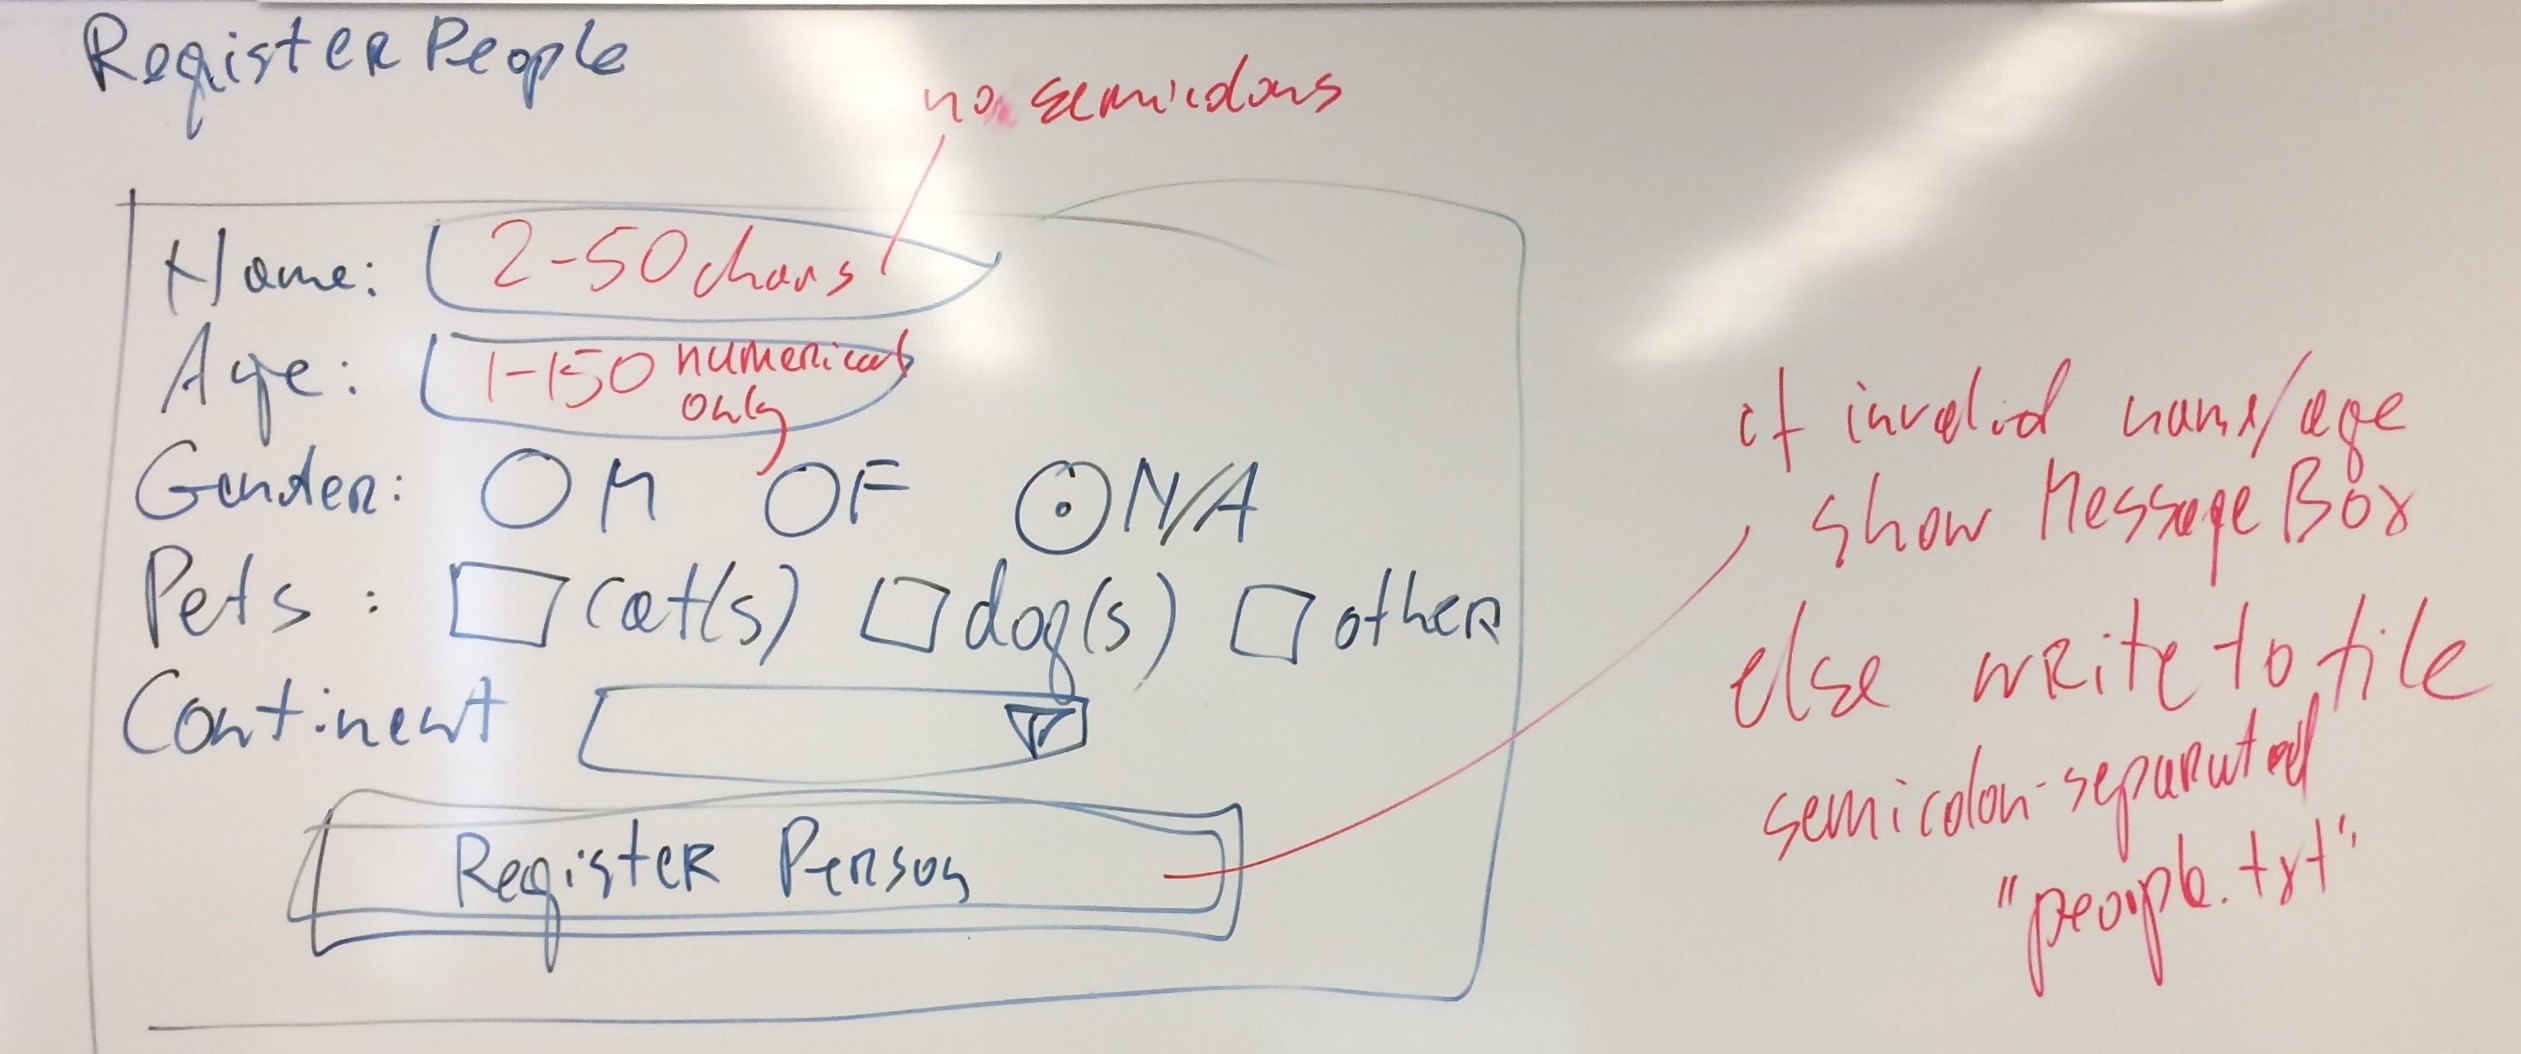 Register People
no semicolons
Name: 2-50 chars
Age: 1-150 numerical
only
Gender: M F N/A
Pets: cat(s) dog(s) other
Continent
Register Person
if invalid name/age
show MessageBox
else write to file
semicolon-separated
"people.txt"